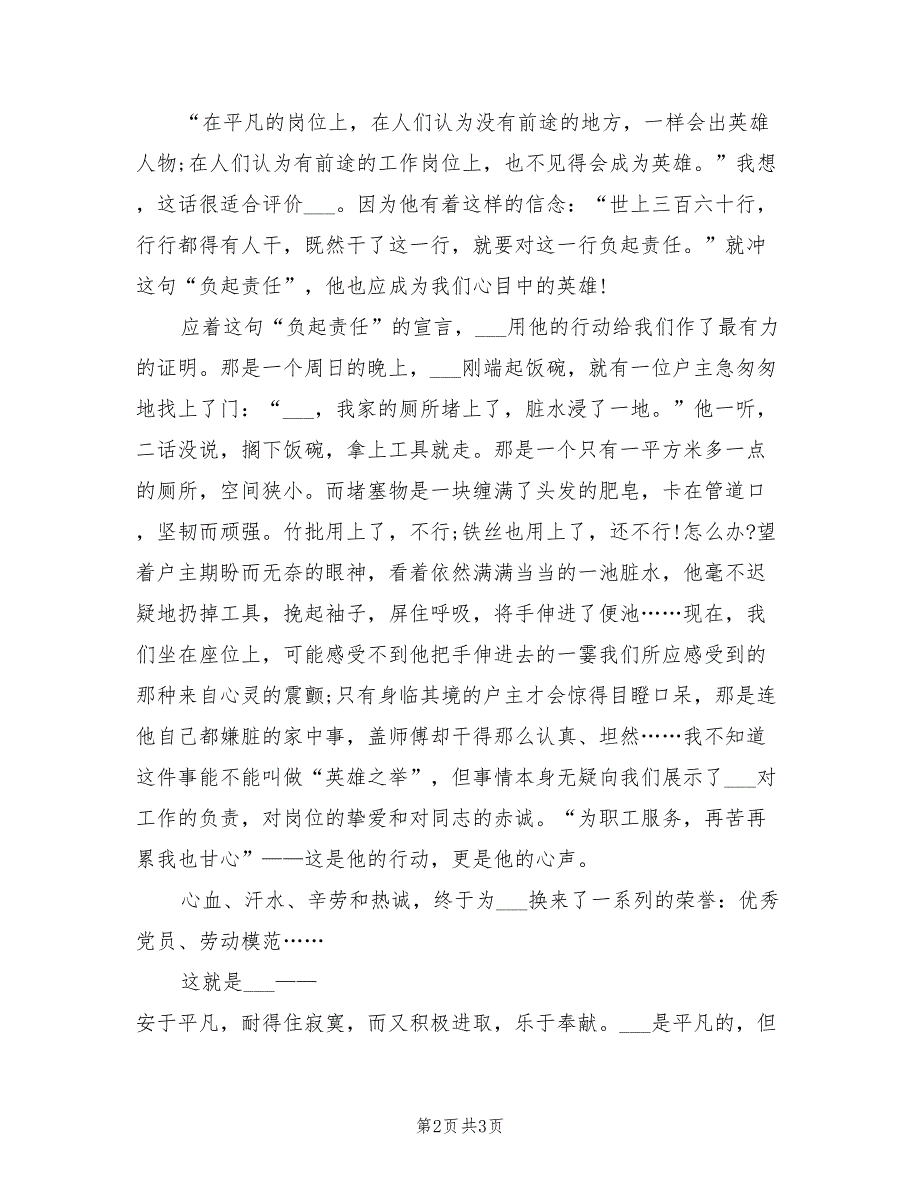 “在平凡的岗位上，在人们认为没有前途的地方，一样会出英雄
人物;在人们认为有前途的工作岗位上，也不见得会成为英雄。”我想
，这话很适合评价___。因为他有着这样的信念：“世上三百六十行，
行行都得有人干，既然干了这一行，就要对这一行负起责任。”就冲
这句“负起责任”，他也应成为我们心目中的英雄!
应着这句“负起责任”的宣言，___用他的行动给我们作了最有力
的证明。那是一个周日的晚上，___刚端起饭碗，就有一位户主急匆匆
地找上了门：“___，我家的厕所堵上了，脏水浸了一地。”他一听，
二话没说，搁下饭碗，拿上工具就走。那是一个只有一平方米多一点
的厕所，空间狭小。而堵塞物是一块缠满了头发的肥皂，卡在管道口
，坚韧而顽强。竹批用上了，不行;铁丝也用上了，还不行!怎么办?望
着户主期盼而无奈的眼神，看着依然满满当当的一池脏水，他毫不迟
疑地扔掉工具，挽起袖子，屏住呼吸，将手伸进了便池……现在，我
们坐在座位上，可能感受不到他把手伸进去的一霎我们所应感受到的
那种来自心灵的震颤;只有身临其境的户主才会惊得目瞪口呆，那是连
他自己都嫌脏的家中事，盖师傅却干得那么认真、坦然……我不知道
这件事能不能叫做“英雄之举”，但事情本身无疑向我们展示了___对
工作的负责，对岗位的挚爱和对同志的赤诚。“为职工服务，再苦再
累我也甘心”——这是他的行动，更是他的心声。
心血、汗水、辛劳和热诚，终于为___换来了一系列的荣誉：优秀
党员、劳动模范……
这就是___——
安于平凡，耐得住寂寞，而又积极进取，乐于奉献。___是平凡的，但
第2页共3页